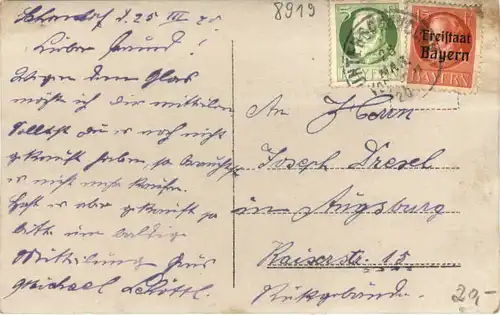 8919
25 III 20
Lieber Freund!
Wegen dem Glas
möcht ich dir mitteilen
Solltest du es noch nicht
gekauft haben so brauchst
es nicht mehr kaufen.
Hast es aber gekauft so
bitte um baldige
Mitteilung Gruß
Michael
BAYERN
Freistaat
Bayern
BAYERN
MAR
An Herrn
Joseph Dresel
in Augsburg
Kaiserstr. 15
Rückgebäude.
20,-